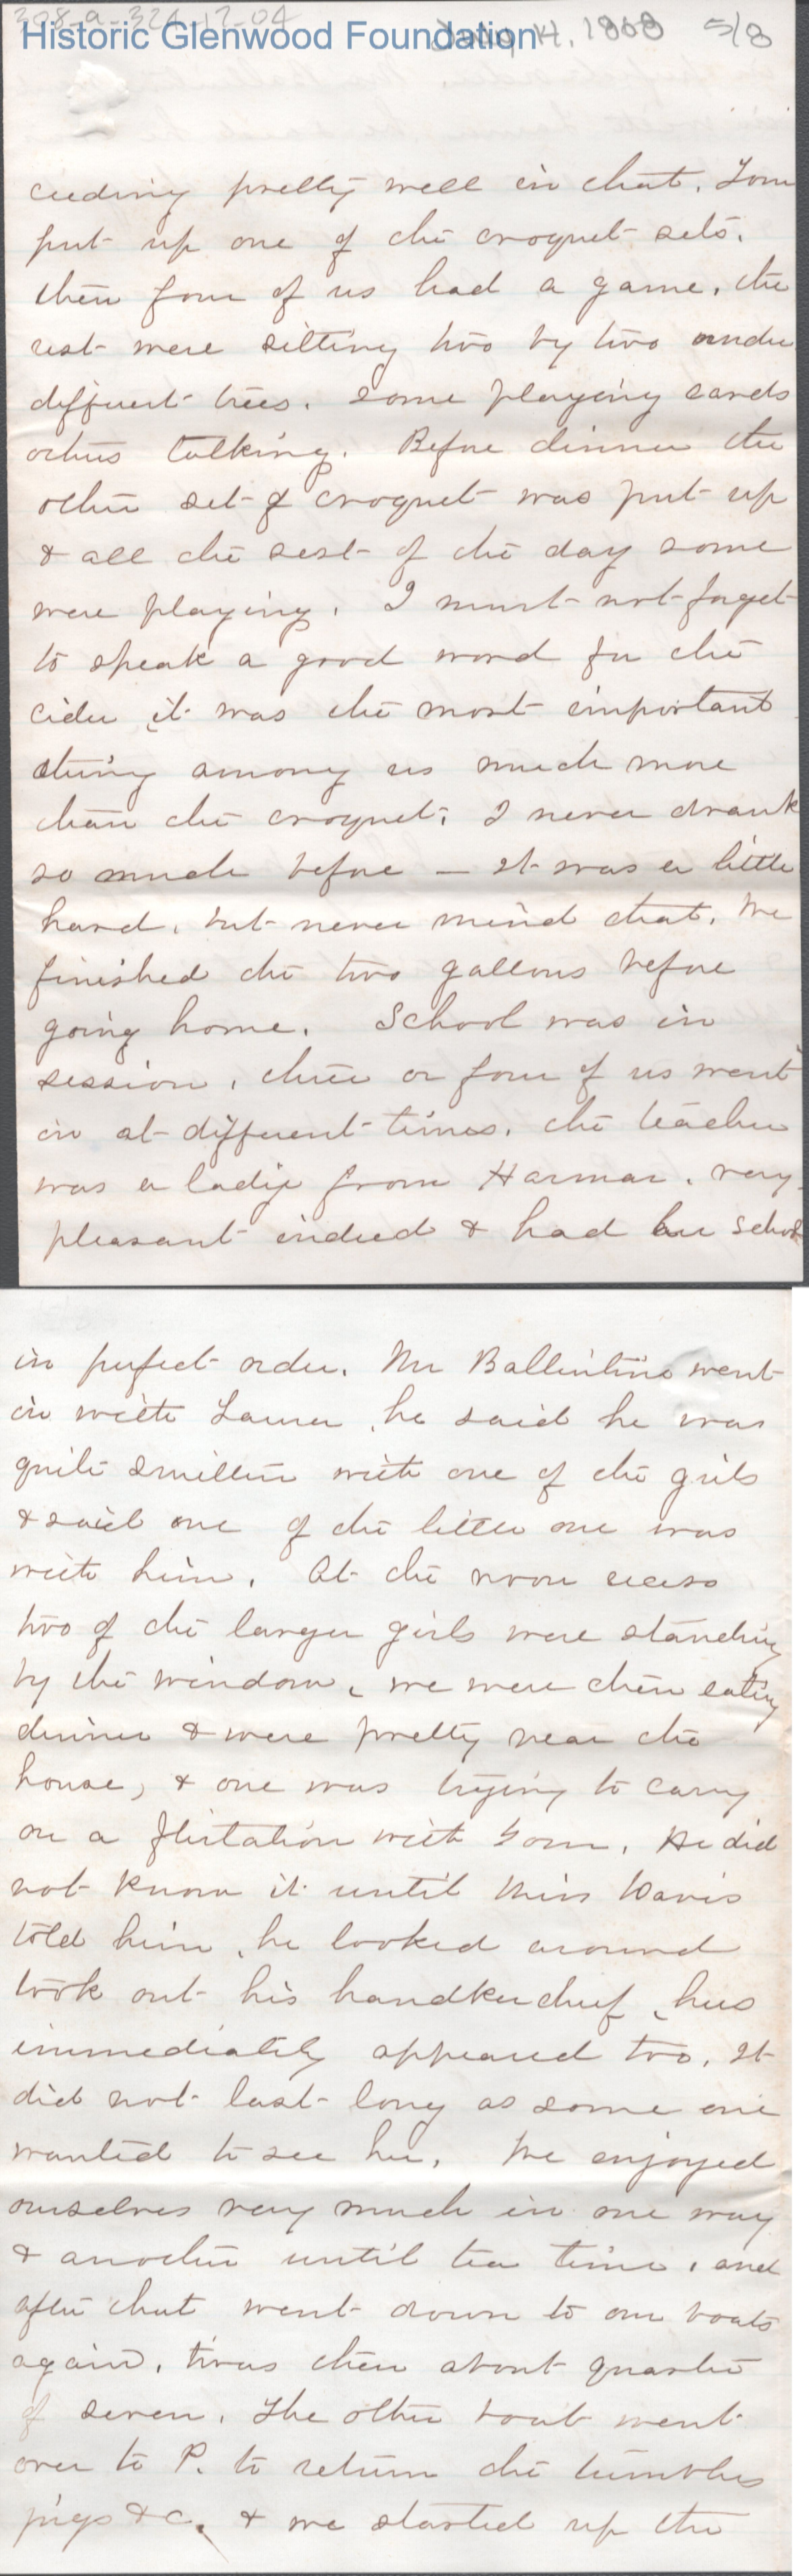 308-a-324-12-04
Historic Glenwood Foundation
4, 1868 5/8
ceeding pretty well in that. Tom
put up one of the croquet sets.
then four of us had a game, the
rest were sitting two by two under
different trees. some playing cards
others talking. Before dinner the
other set of croquet was put up
& all the rest of the day some
were playing. I must not forget
to speak a good word for the
cider it was the most important
thing among us much more
than the croquet; I never drank
so much before — it was a little
hard, but never mind that. We
finished the two gallons before
going home. School was in
session, three or four of us went
in at different times. the teacher
was a lady from Harmar. very
pleasant indeed & had her school
in perfect order. Mr Ballintine went
in with Laura, he said he was
quite smitten with one of the girls
& said one of the little one was
with him. At the noon recess
two of the larger girls were standing
by the window, we were then eating
dinner & were pretty near the
house, & one was trying to carry
on a flirtation with Tom. He did
not know it until Miss Davis
told him, he looked around
took out his handkerchief, hers
immediately appeared too. It
did not last long as some one
wanted to see her. We enjoyed
ourselves very much in one way
& another until tea time, and
after that went down to our boats
again, twas then about quarter
of seven. The other boat went
over to P. to return the tumblers
jugs &c. & we started up the